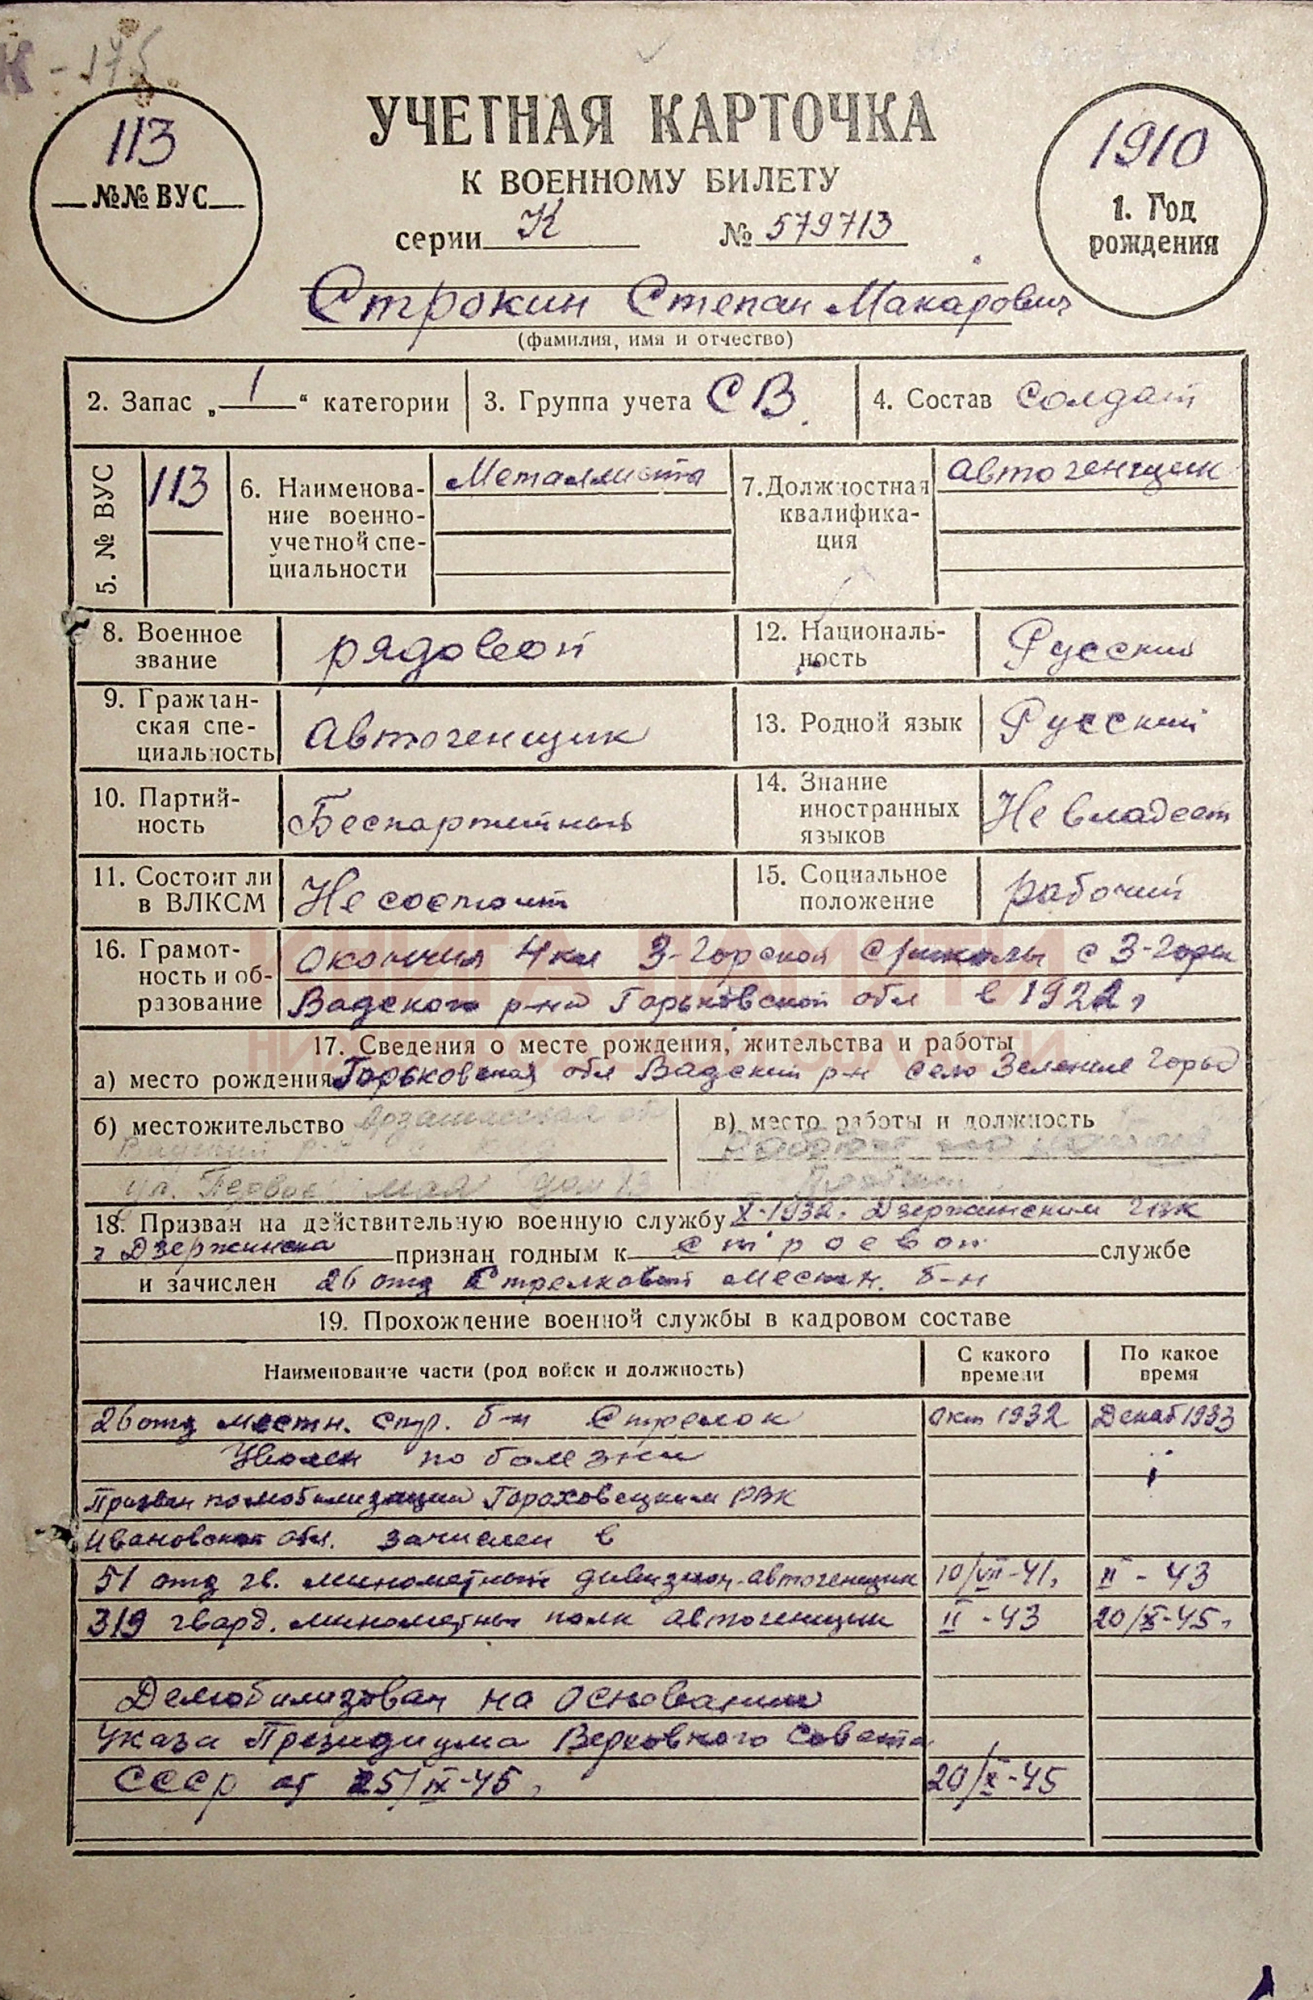 К - 175
113
№№ ВУС
УЧЕТНАЯ КАРТОЧКА
К ВОЕННОМУ БИЛЕТУ
серии К № 579713
1910
1. Год
рождения
Строкин Степан Макарович
(фамилия, имя и отчество)
2. Запас „ 1 “ категории
3. Группа учета СВ.
4. Состав солдат
5. № ВУС
113
6. Наименова-
ние военно-
учетной спе-
циальности
Металлисты
7. Должностная
квалифика-
ция
автогенщик
8. Военное
звание
рядовой
12. Националь-
ность
Русский
9. Граждан-
ская спе-
циальность
Автогенщик
13. Родной язык
Русский
10. Партий-
ность
Беспартийный
14. Знание
иностранных
языков
Не владеет
11. Состоит ли
в ВЛКСМ
Не состоит
15. Социальное
положение
рабочий
16. Грамот-
ность и об-
разование
Окончил 4 кл З-Горской школы с З-Горы
Вадского р-на Горьковской обл в 1922 г
КНИГА ПАМЯТИ
НИЖЕГОРОДСКОЙ ОБЛАСТИ
17. Сведения о месте рождения, жительства и работы
а) место рождения Горьковская обл Вадский р-н село Зеленые Горы
б) местожительство Арзамасская об
Вадский
ул. Первое мая дом 13
в) место работы и должность
18. Призван на действительную военную службу X-1932г. Дзержинским ГВК
г Дзержинска признан годным к строевой службе
и зачислен 26 отд Стрелковый местн. б-н
19. Прохождение военной службы в кадровом составе
Наименование части (род войск и должность)
С какого
времени
По какое
время
26 отд местн. стр. б-н Стрелок окт 1932 Декаб 1933
Уволен по болезни
Призван по мобилизации Гороховецким РВК
Ивановской обл. зачислен в
51 отд гв. минометный дивизион-автогенщик 10/VII-41г II - 43
319 гвард. минометный полк автогенщик II - 43 20/X-45г
Демобилизован на основании
Указа Президиума Верховного Совета
СССР от 25/IX-45г 20/X-45